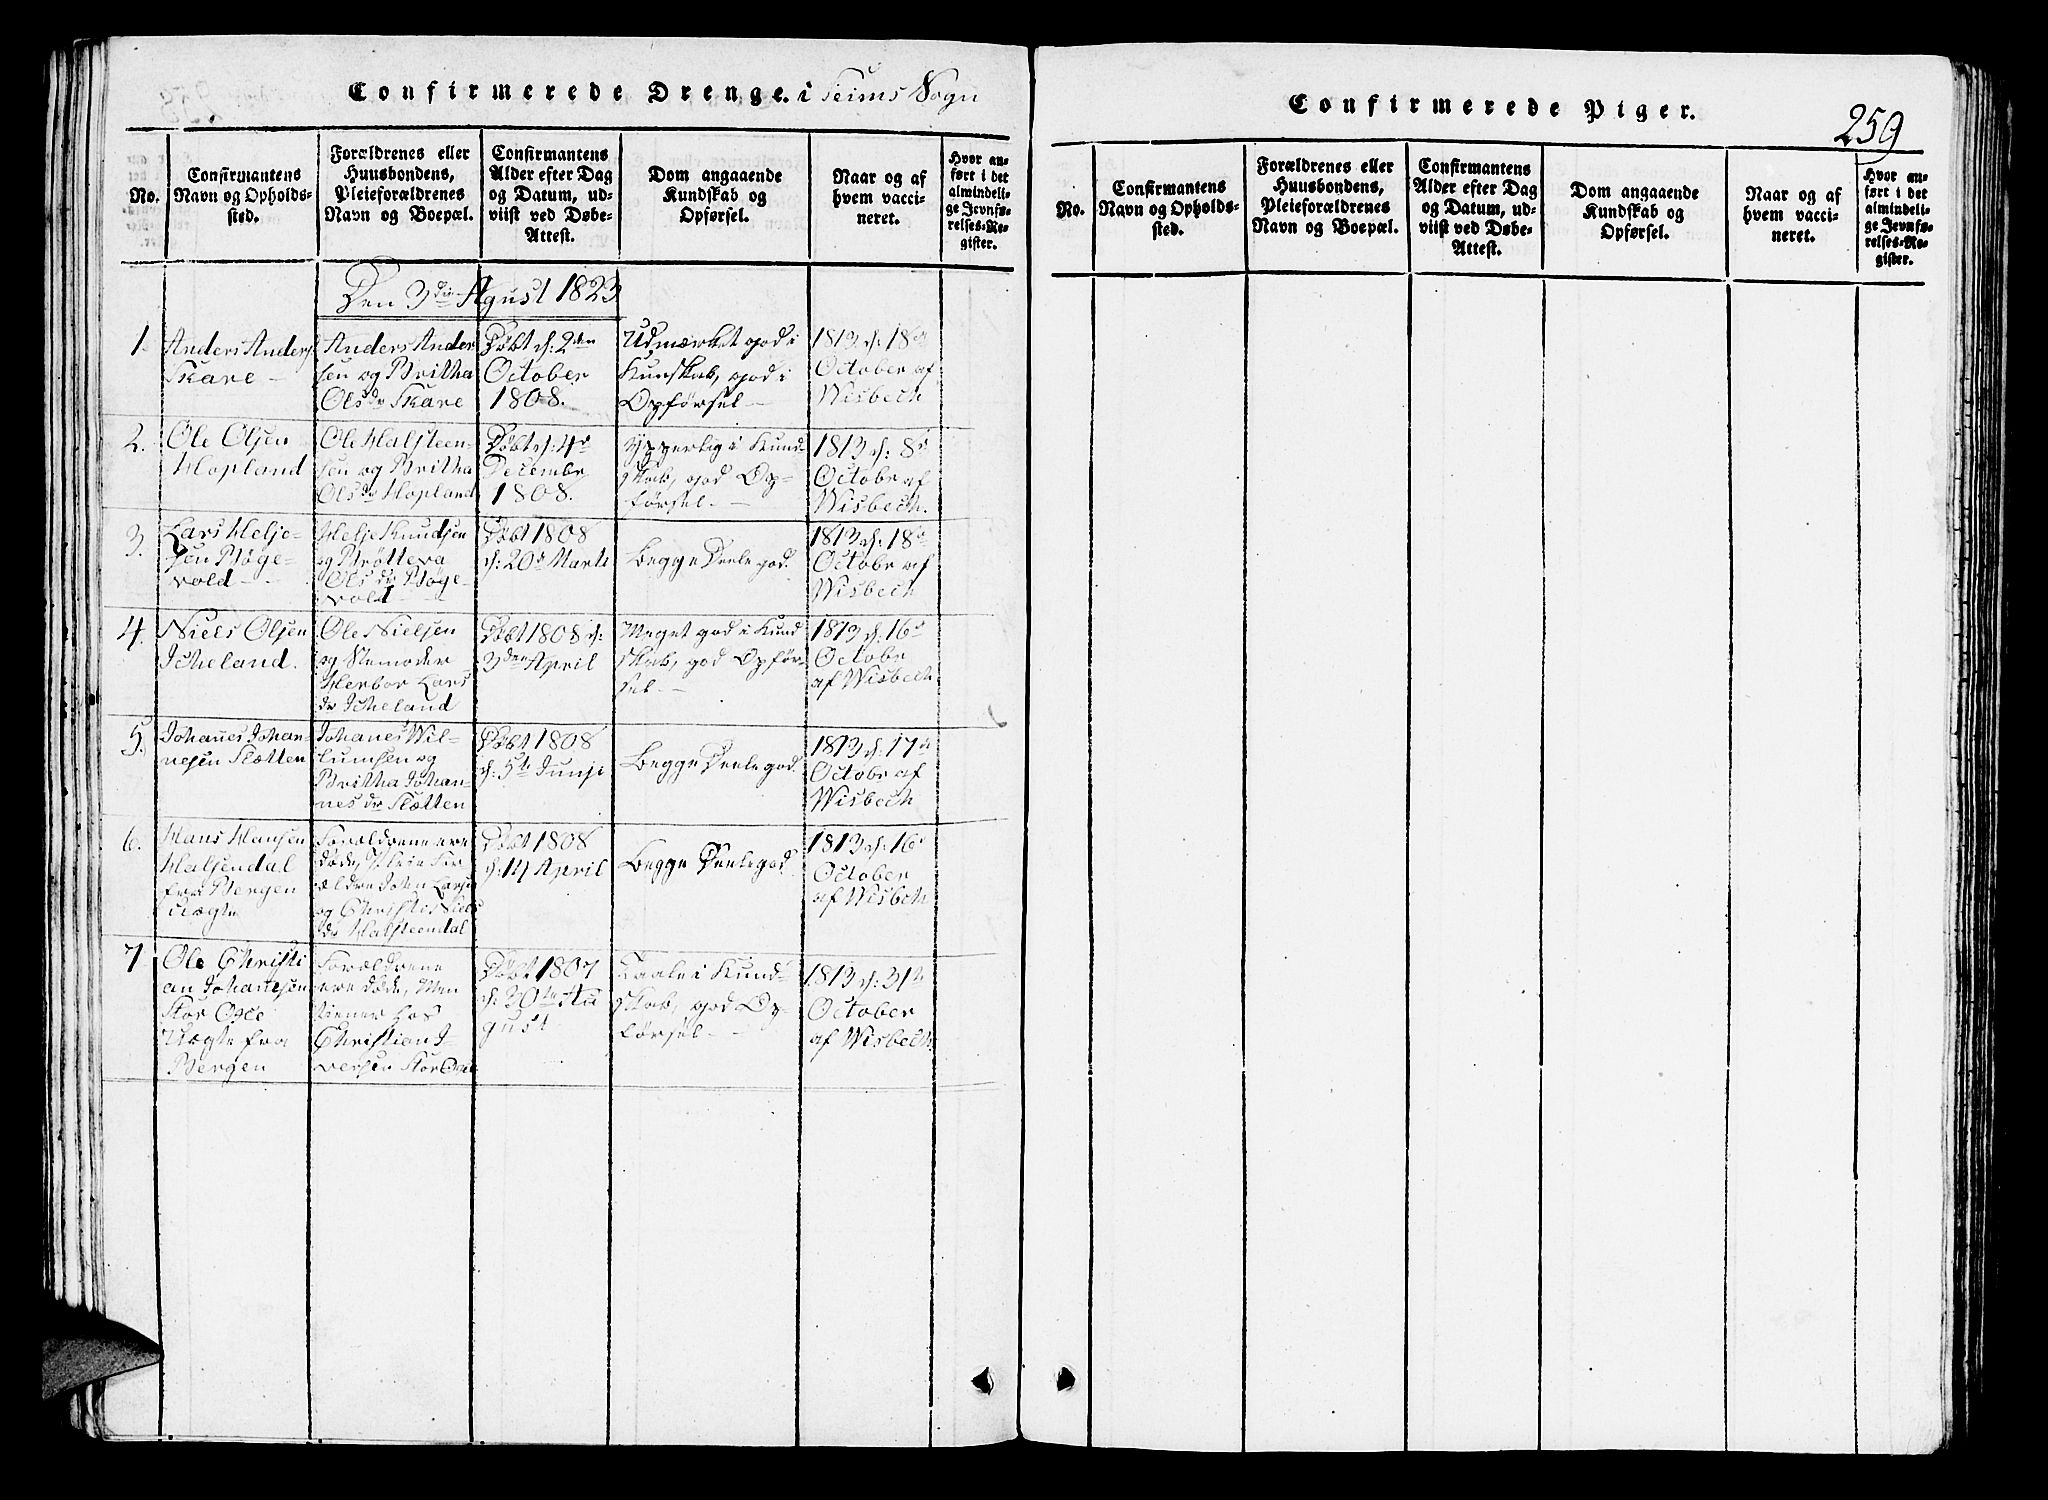 Confirmerede Drenge. i Seims Sogn
No.
Confirmantens
Navn og Opholds-
sted.
Forældrenes eller
Huusbondens,
Pleieforældrenes
Navn og Boepæl.
Confirmantens
Alder efter Dag
og Datum, ud-
viist ved Døbe-
Attest.
Dom angaaende
Kundskab og
Opførsel.
Naar og af
hvem vacci-
neret.
Hvor an-
ført i det
almindeli-
ge Jevnfø-
relses-Re-
gister.
Den 3die Agust 1823
1.
Anders Anders
Skare -
Anders Ander
sen og Britha
Ols dr Skare
Døbt d: 2den
October
1808.
Udmærket god i
Kunskab, god i
Opførsel -
1813 d: 18de
October af
Wisbech
2.
Ole Olsen
Hopland
Ole Halsteen-
sen og Britha
Ols dr Hopland
Døbt d: 4de
Decembr
1808.
Ypperlig i Kund-
skab, god Op-
førsel. -
1813 d: 8de
Octobr af
Wisbech.
3.
Lars Helje-
sen Bøge-
vold -
Helje Knudsen
og Brøtteva
Ols dr Bøge-
vold
Døbt 1808
d: 20de Marti
Begge Deele god.
1813 d: 18de
Octobr af
Wisbech
4.
Niels Olsen
Icheland.
Ole Nielsen
og Stemoder
Herbor Lars
dr Icheland
Døbt 1808 d:
3den April
Meget god i Kund
skab, god Opfør-
sel. -
1813 d: 16de
Octobr
af Wisbech
5.
Johanes Johan-
nesen Slætten
Johanes Wil-
lumsen og
Britha Johan-
nes dr Slætten
Døbt 1808
d: 5te Junji
Begge Deele god.
1813 d: 17de
Octobr af
Wisbech
6.
Hans Hansen
Halsendal
fra Bergen
Forældrene ere
døde, Pleie For
ældre John Larsen
og Christi Niels
dr Halsteendal
Døbt 1808
d: 14 April
Begge Deele god
1813 d: 16de
October
af Wisbech
7.
Ole Christi
an Johanesen
Stor Oxe
fra
Bergen
Forældrene
ere døde, Men
tiener hos
Christian I-
versen Stor Oxe
Døbt 1807
d: 30te Au
gust
Taale i Kund-
skab, god Op-
førsel. -
1813 d: 31te
October
af Wisbech.
Confirmerede Piger.
259
No.
Confirmantens
Navn og Opholds-
sted.
Forældrenes eller
Huusbondens,
Pleieforældrenes
Navn og Boepæl.
Confirmantens
Alder efter Dag
og Datum, ud-
viist ved Døbe-
Attest.
Dom angaaende
Kundskab og
Opførsel.
Naar og af
hvem vacci-
neret.
Hvor an-
ført i det
almindeli-
ge Jevnfø-
relses-Re-
gister.